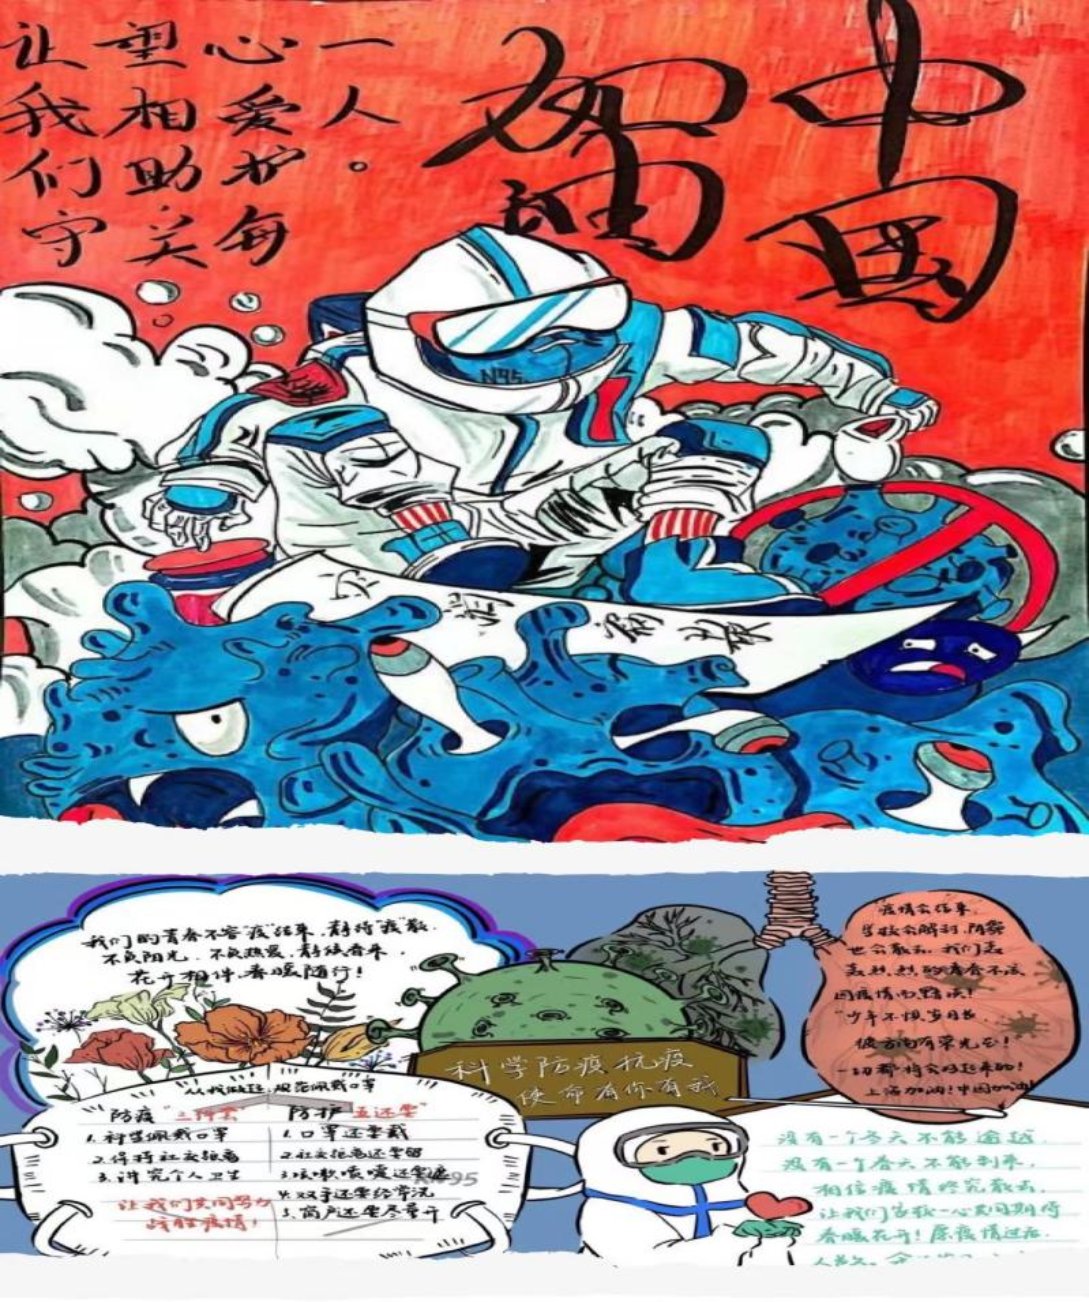 让我们守
望相助关
心爱护每
一人。
中国
加油
N95
我们的青春不容“疫”结束,静待“疫”散,
不负阳光,不负热爱,静候春来,
花开相伴,春暖随行!
科学防疫抗疫
使命有你有我
疫情会结束,
学校会解封,阴霾
也会散去,我们轰
轰烈烈的青春不该
因疫情而黯淡!
“少年不惧岁月长,
彼方尚有荣光在!
一切都将会好起来的!
上海加油!中国加油!
从我做起,规范佩戴口罩
防疫“三件套”
1.科学佩戴口罩
2.保持社交距离
3.讲究个人卫生
让我们共同努力
战胜疫情!
防护“五还要”
1.口罩还要戴
2.社交距离还要留
3.咳嗽喷嚏还要遮
4.双手还要经常洗
5.窗户还要尽量开
N95
没有一个冬天不能逾越,
没有一个春天不能到来,
相信疫情终究散去,
让我们家校一心共同期待
春暖花开!愿疫情过后,